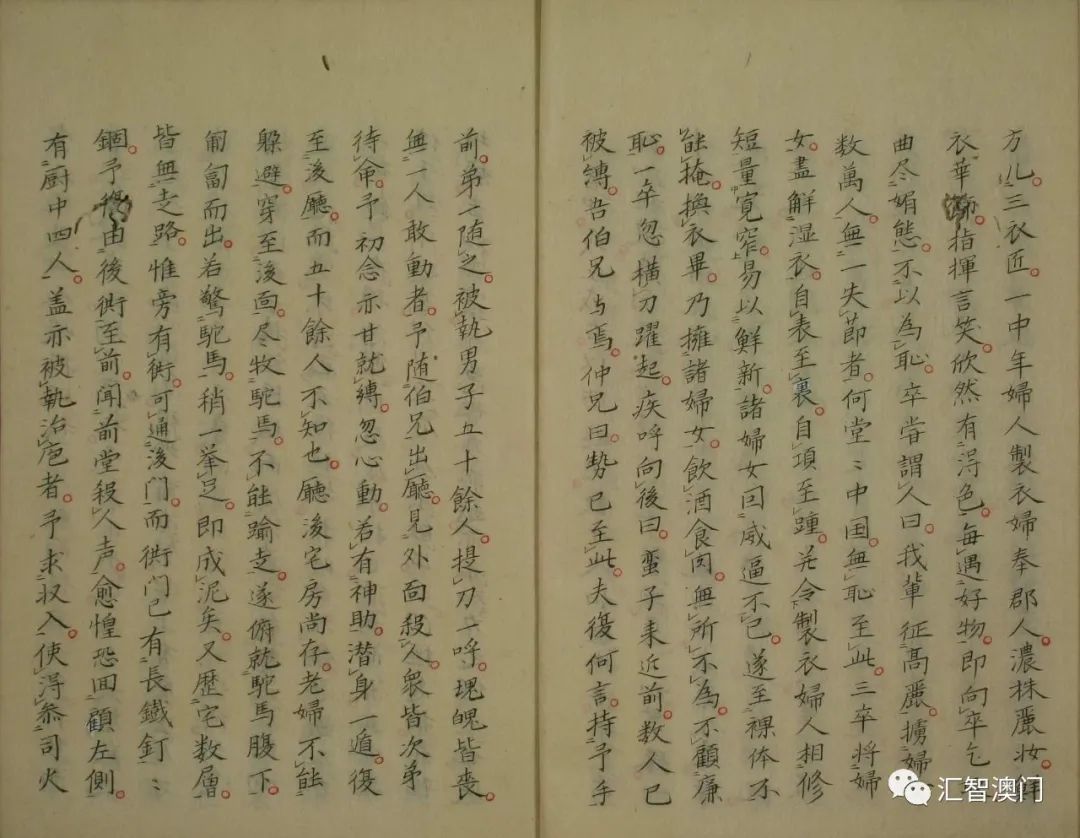 方儿。三衣匠。一中年婦人製衣婦奉郡人。濃株麗妝。鮮
衣華飾。指揮言笑。欣然有淂色。每遇好物。即向卒乞
曲尽媚態。不以為恥。卒尝謂人曰。我輩征髙麗。擄婦
数萬人。無一失節者。何堂〻中国。無恥至此。三卒將婦
女。盡解湿衣。自表至裏。自項至踵。并令製衣婦人相修
短量寬窄。易以鮮新。諸婦女囙威逼不已。遂至祼体不
能掩。換衣畢。乃擁諸婦女。飲酒食肉。無所不為。不顧廉
恥。一卒忽橫刀躍起。疾呼向後曰。蛮子来近前。数人已
被縛。吾伯兄与焉。仲兄曰。势已至此。夫復何言。持予手
前。弟一随之。被執男子五十餘人。提刀一呼。塊魄皆喪。
無一人敢動者。予随伯兄出廳。見外面殺人。衆皆次弟
待命。予初念亦甘就縛。忽心動。若有神助。潛身一遁。復
至後廳。而五十餘人不知也。廳後宅房尚存。老婦不能
躲避。穿至後面。尽牧駝馬。不能踰走。遂俯就駝馬腹下。
匍匐而出。若驚駝馬。稍一举足。即成泥矣。又歴宅数層。
皆無走路。惟旁有衖。可通後门。而衖门已有長鐵釘〻
錮。予復由後衖至前。聞前堂殺人声。愈惶恐囬顧左側。
有厨中四人。盖亦被執治庖者。予求収入。使淂叅司火
汇智澳门